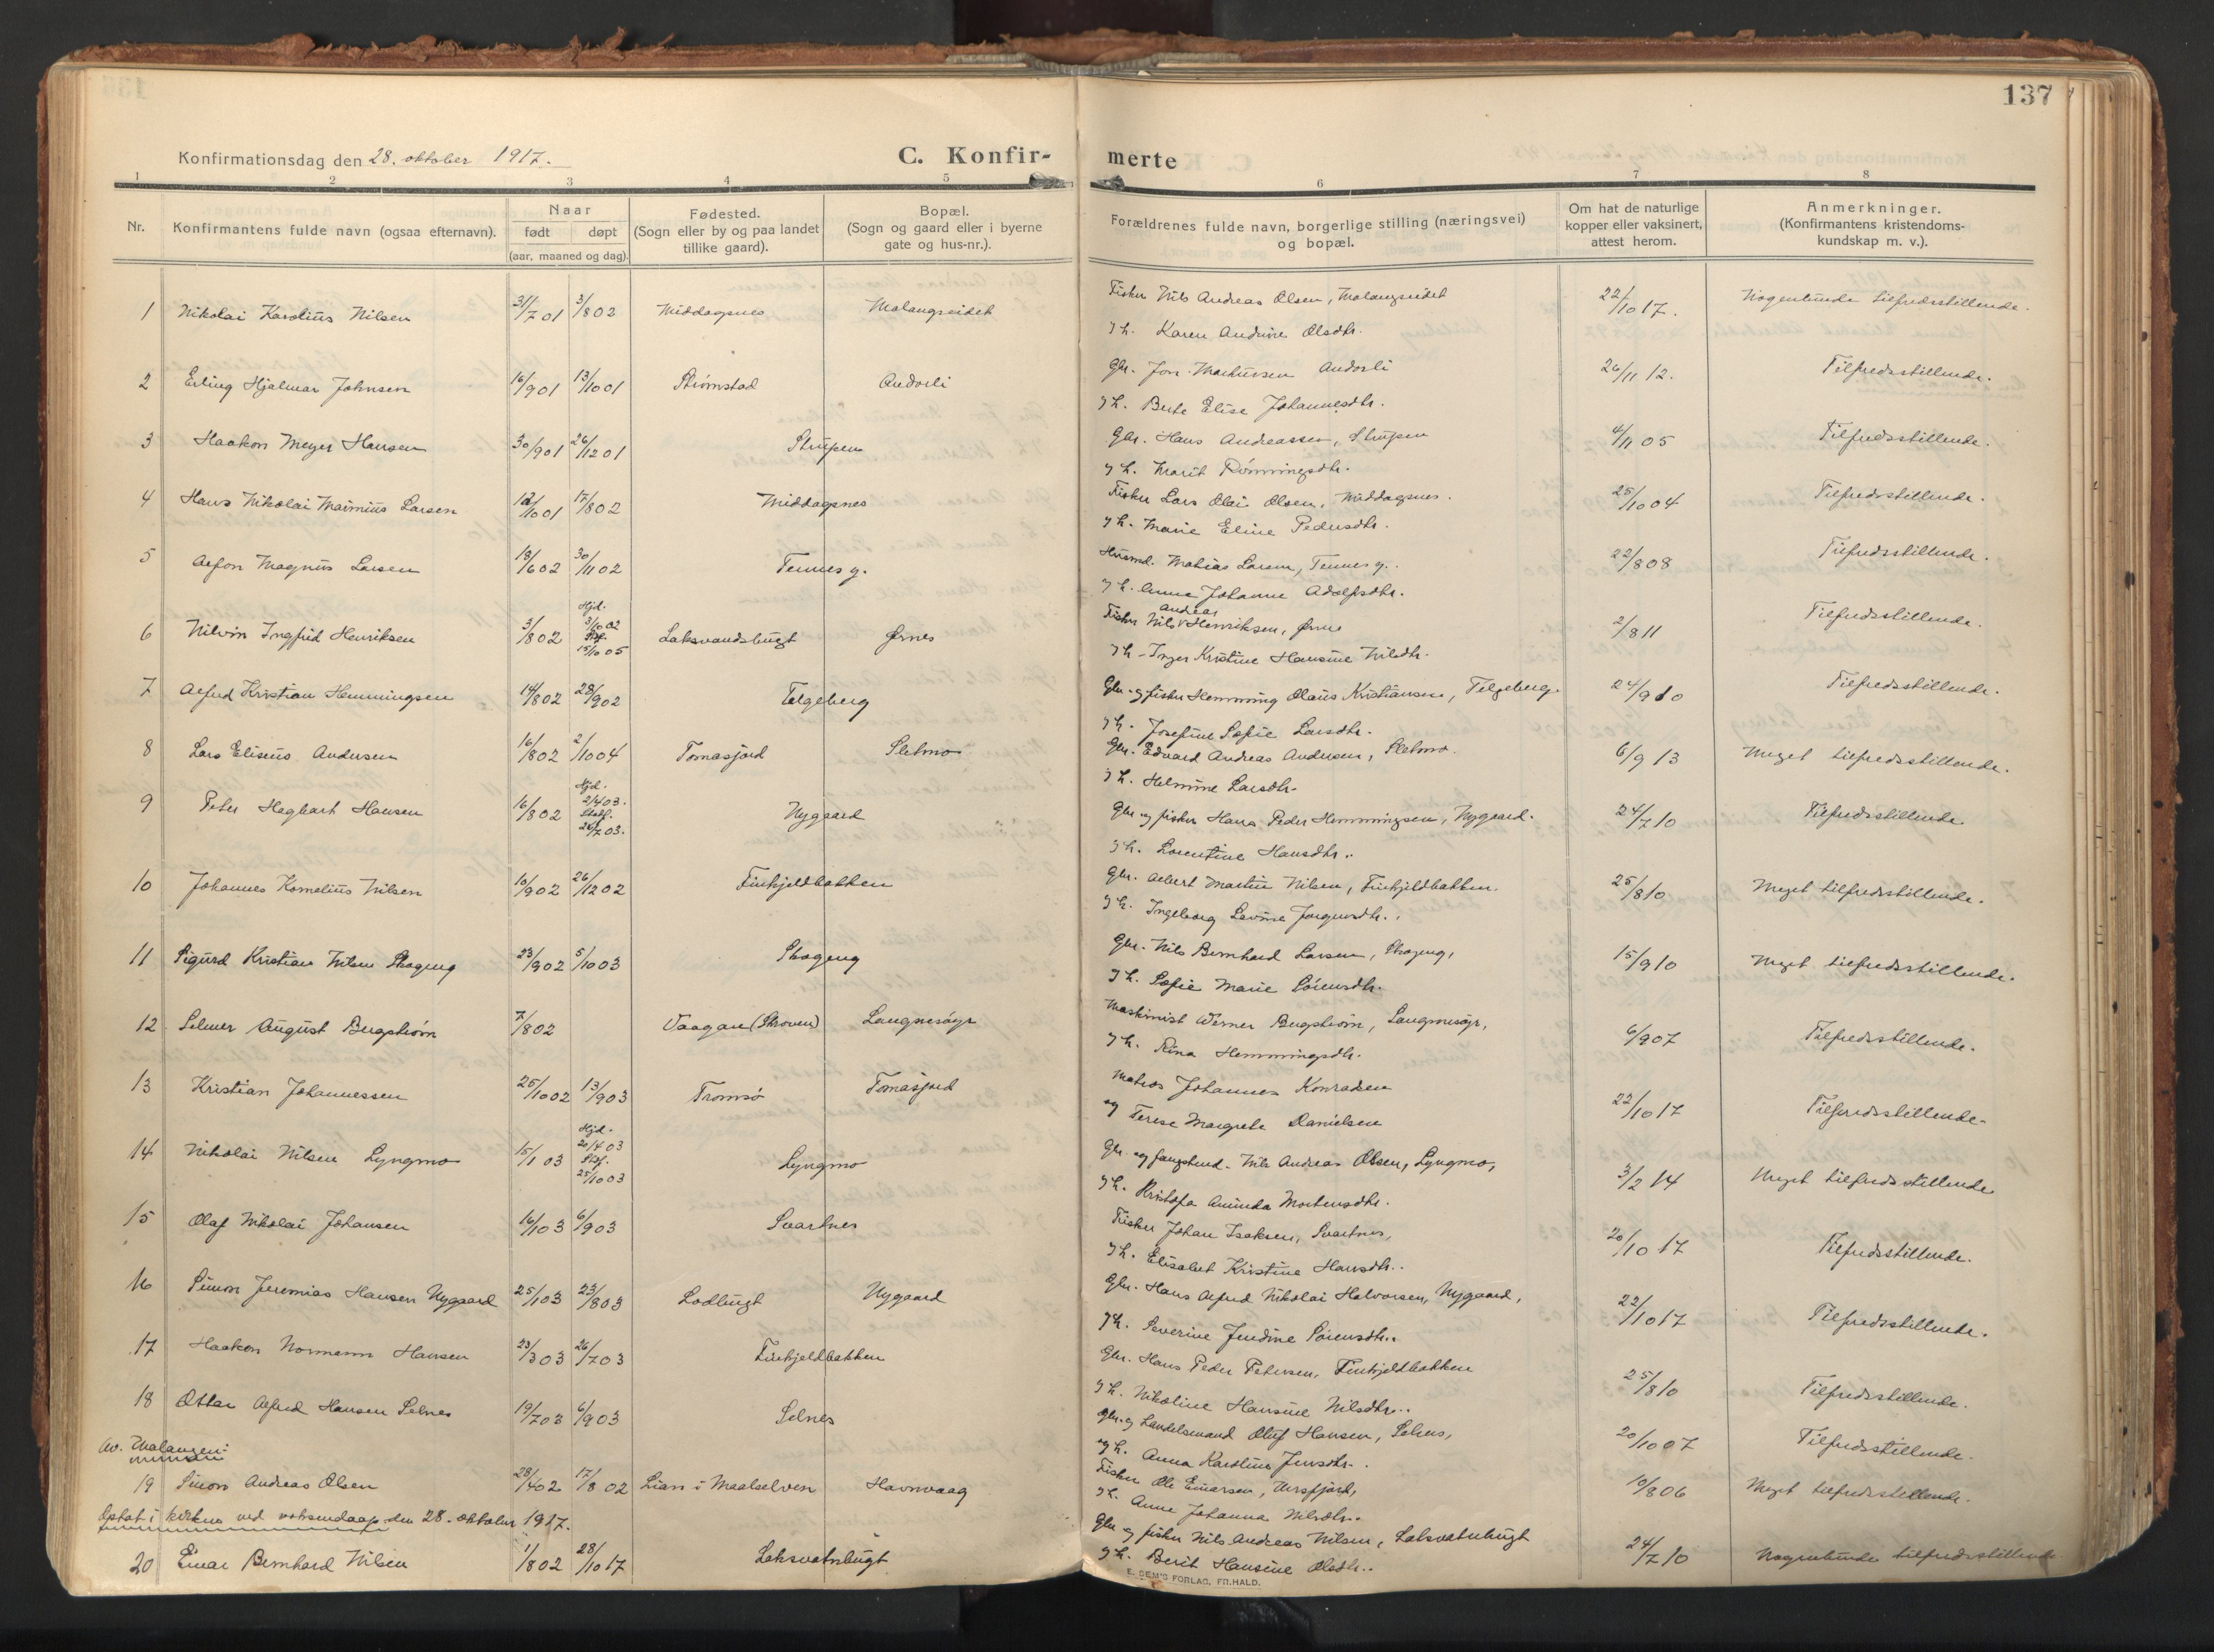 137
Konfirmationsdag den 28. oktober 1917.
C. Konfir- merte
1 2 3 4 5 6 7 8
Nr.
Konfirmantens fulde navn (ogsaa efternavn).
Naar
født døpt
(aar, maaned og dag).
Fødested.
(Sogn eller by og paa landet
tillike gaard).
Bopæl.
(Sogn og gaard eller i byerne
gate og hus-nr.).
Forældrenes fulde navn, borgerlige stilling (næringsvei)
og bopæl.
Om hat de naturlige
kopper eller vaksinert,
attest herom.
Anmerkninger.
(Konfirmantens kristendoms-
kundskap m. v.).
1 Nikolai Karolius Nilsen 31/7 01 3/8 02 Middagsnes Malangseidet Fisker Nils Andreas Olsen, Malangseidet 22/10 17. Nogenlunde tilfredsstillende.
Karen Andrine Olsdtr.
2 Erling Hjalmar Johnsen 16/9 01 13/10 01 Strømstad Andorli Gbr. Jon Markussen Andorli 26/11 12. Tilfredsstillende.
Berte Elise Johannesdtr.
3 Haakon Meyer Hansen 30/9 01 26/12 01 Strupen Gbr. Hans Andreassen, Strupen 4/11 05 Tilfredsstillende.
Marit Rønningsdtr.
4 Hans Nikolai Marinius Larsen 12/10 01 17/8 02 Middagsnes Fisker Lars Olai Olsen, Middagsnes. 25/10 04 Tilfredsstillende.
Marie Eline Pedersdtr.
5 Alfon Magnus Larsen 18/6 02 30/11 02 Tennes g. Husmd. Matias Larsen, Tennes g. 22/8 08 Tilfredsstillende.
Anna Johanne Adolfsdtr.
6 Nilvin Ingfrid Henriksen 3/8 02 Hjd. 3/10 02 Stdf. 15/10 05 Laksvandsbugt Ørnes Fisker Nils Andreas Henriksen, Ørnes 2/8 11 Tilfredsstillende.
Inger Kristine Hansine Nilsdtr.
7 Alfred Kristian Hemmingsen 14/8 02 28/9 02 Telgeberg Gbr. og fisker Hemming Olaus Kristiansen, Telgeberg. 24/9 10 Tilfredsstillende.
Josefine Sofie Larsdtr.
8 Lars Eliseus Andersen 16/8 02 2/10 04 Tomasjord Sletmo Gbr. Edvard Andreas Andersen, Sletmo. 6/9 13 Meget tilfredsstillende.
Helmine Larsdtr.
9 Peter Hagbart Hansen 16/8 02 Hjd. 2/4 03. Stadf. 26/7 03. Nygaard Gbr. og fisker Hans Peder Hemmingsen, Nygaard. 24/7 10 Tilfredsstillende.
Lorentine Hansdtr.
10 Johannes Kornelius Nilsen 10/9 02 26/12 02 Finkjeldbakken Gbr. Albert Martin Nilsen, Finkjeldbakken. 25/8 10 Meget tilfredsstillende.
Ingeborg Lovise Jørgensdtr.
11 Sigurd Kristian Nilsen Skogeng 23/9 02 5/10 03 Skogeng Gbr. Nils Bernhard Larsen, Skogeng, 15/9 10 Meget tilfredsstillende.
Sofie Marie Sørensdtr.
12 Selmer August Bergstrøm 7/8 02 Vaagan (Skroven) Langnesøyr Maskinist Werner Bergstrøm, Langnesøyr, 6/9 07 Tilfredsstillende.
Rina Hemmingsdtr.
13 Kristian Johannessen 25/10 02 13/9 03 Tromsø Tomasjord Matros Johannes Konradsen 22/10 17 Tilfredsstillende.
og Terese Margrete Danielsen
14 Nikolai Nilsen Lyngmo 15/1 03 Hjd. 20/4 03 Stdf. 25/10 03 Lyngmo Gbr. og fangstmd. Nils Andreas Olsen, Lyngmo, 3/2 14 Meget tilfredsstillende
Kristofa Aminda Mortensdtr.
15 Olaf Nikolai Johansen 16/1 03 6/9 03 Svartnes Fisker Johan Isaksen, Svartnes, 20/10 17 Tilfredsstillende.
Elisabet Kristine Hansdtr.
16 Simon Jeremias Hansen Nygaard 25/1 03 23/8 03 Lodbugt Nygaard Gbr. Hans Alfred Nikolai Halvorsen, Nygaard, 22/10 17 Tilfredsstillende.
Severine Jendine Sørensdtr.
17 Haakon Normann Hansen 23/3 03 26/7 03 Finkjeldbakken Gbr. Hans Peder Petersen, Finkjeldbakken 25/8 10 Tilfredsstillende.
Nikoline Hansine Nilsdtr.
18 Ottar Alfred Hansen Selnes 19/7 03 6/9 03 Selnes Gbr. og Handelsmand Oluf Hansen, Selnes, 20/10 07 Tilfredsstillende.
Anna Karoline Jensdtr.
Av. Malangen:
19 Simon Andreas Olsen 28/4 02 17/8 02 Lian i Maalselven Havnvaag Fisker Ole Einarsen, Ursfjord, 10/8 06 Meget tilfredsstillende.
Anne Johanna Nilsdtr.
Optat i kirken ved voksendaap den 28. oktober 1917.
20 Einar Bernhard Nilsen 1/8 02 28/10 17 Laksvatnbugt Gbr. og fisker Nils Andreas Nilsen, Laksvatnbugt 24/7 10 Nogenlunde tilfredsstillende
Berit Hansine Olsdtr.
E. SEM'S FORLAG, FR.HALD.